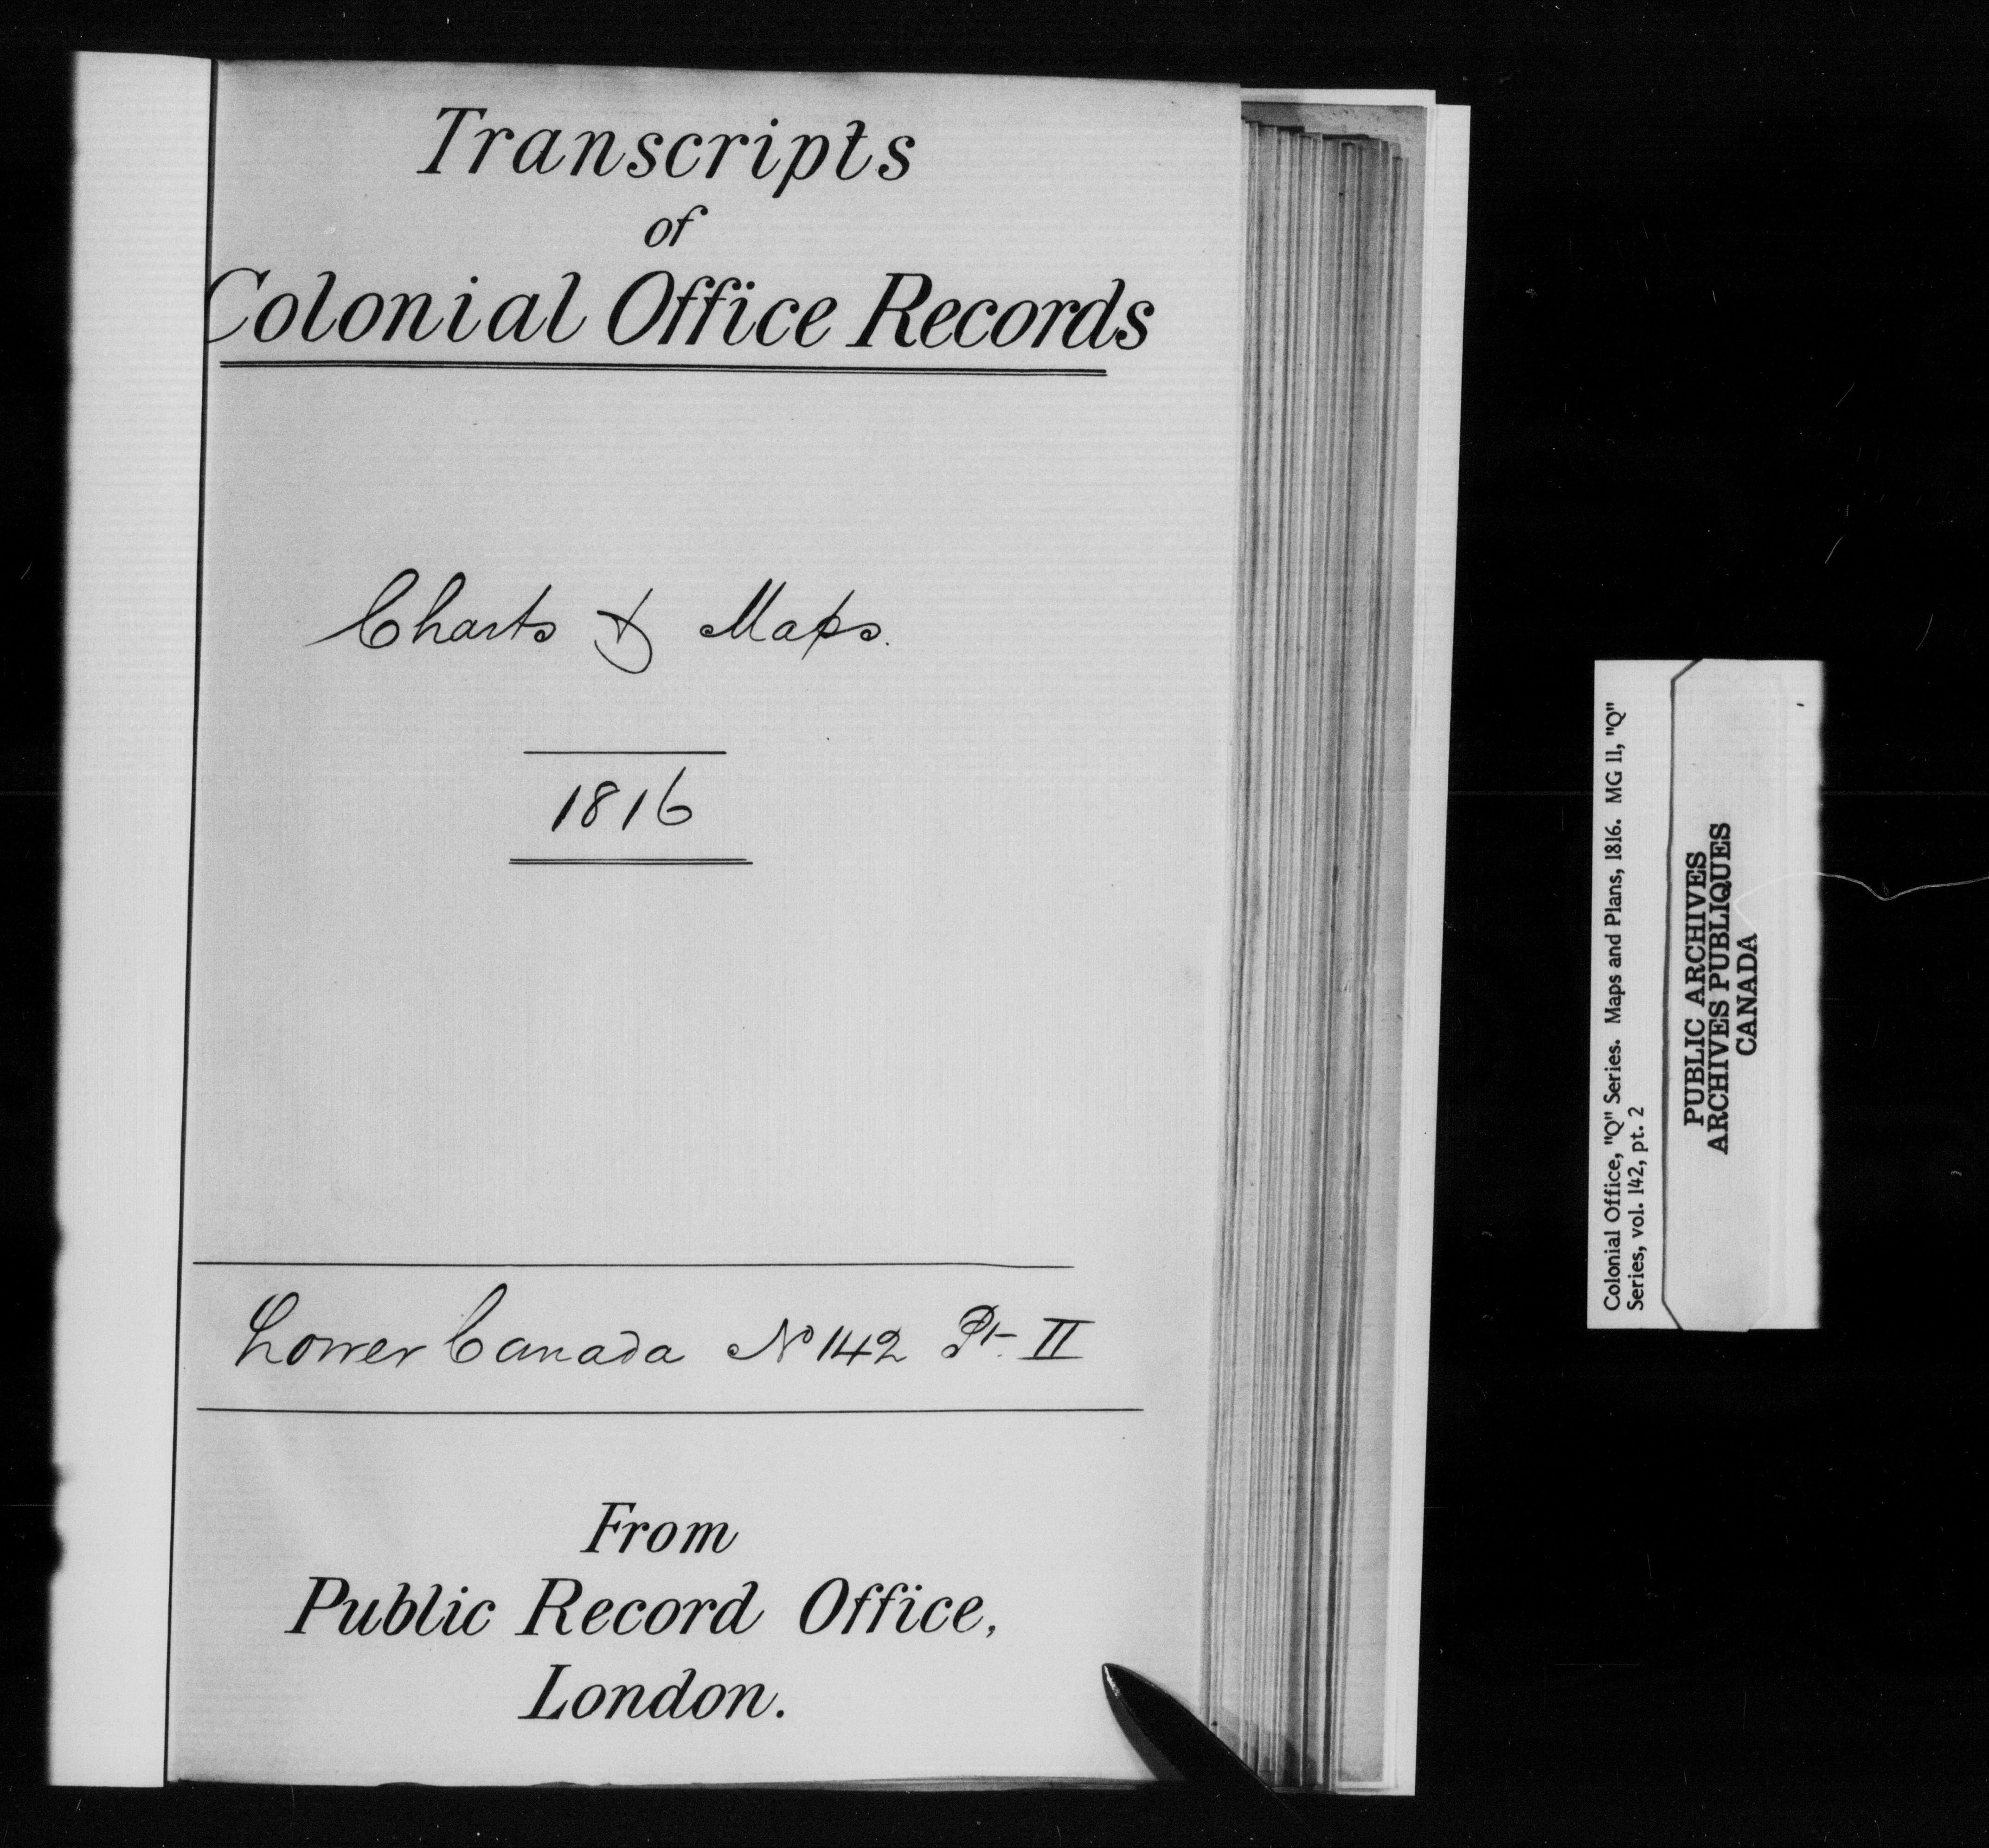 Transcripts
of
Colonial Office Records
Charts & Maps.
1816
Lower Canada No 142 Pt. II
From
Public Record Office,
London.
Colonial Office, "Q" Series. Maps and Plans, 1816. MG 11, "Q"
Series, vol. 142, pt. 2
PUBLIC ARCHIVES
ARCHIVES PUBLIQUES
CANADA